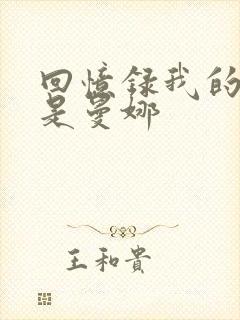 回憶録我的
是曼娜
王和貴